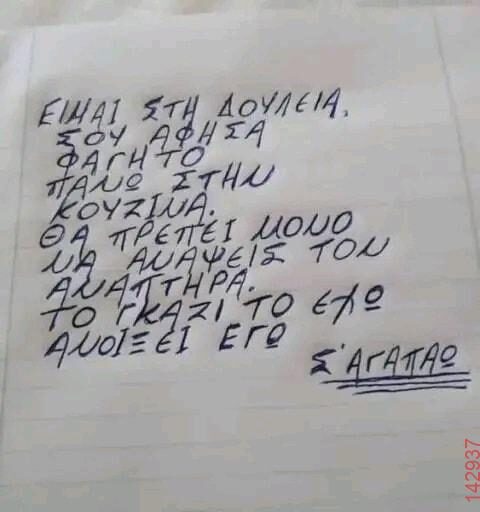 ΕΙΜΑΙ ΣΤΗ ΔΟΥΛΕΙΑ.
ΣΟΥ ΑΦΗΣΑ
ΦΑΓΗΤΟ
ΠΑΝΩ ΣΤΗΝ
ΚΟΥΖΙΝΑ.
ΘΑ ΠΡΕΠΕΙ ΜΟΝΟ
ΝΑ ΑΝΑΨΕΙΣ ΤΟΝ
ΑΝΑΠΤΗΡΑ.
ΤΟ ΓΚΑΖΙ ΤΟ ΕΧΩ
ΑΝΟΙΞΕΙ ΕΓΩ
Σ'ΑΓΑΠΑΩ
142937